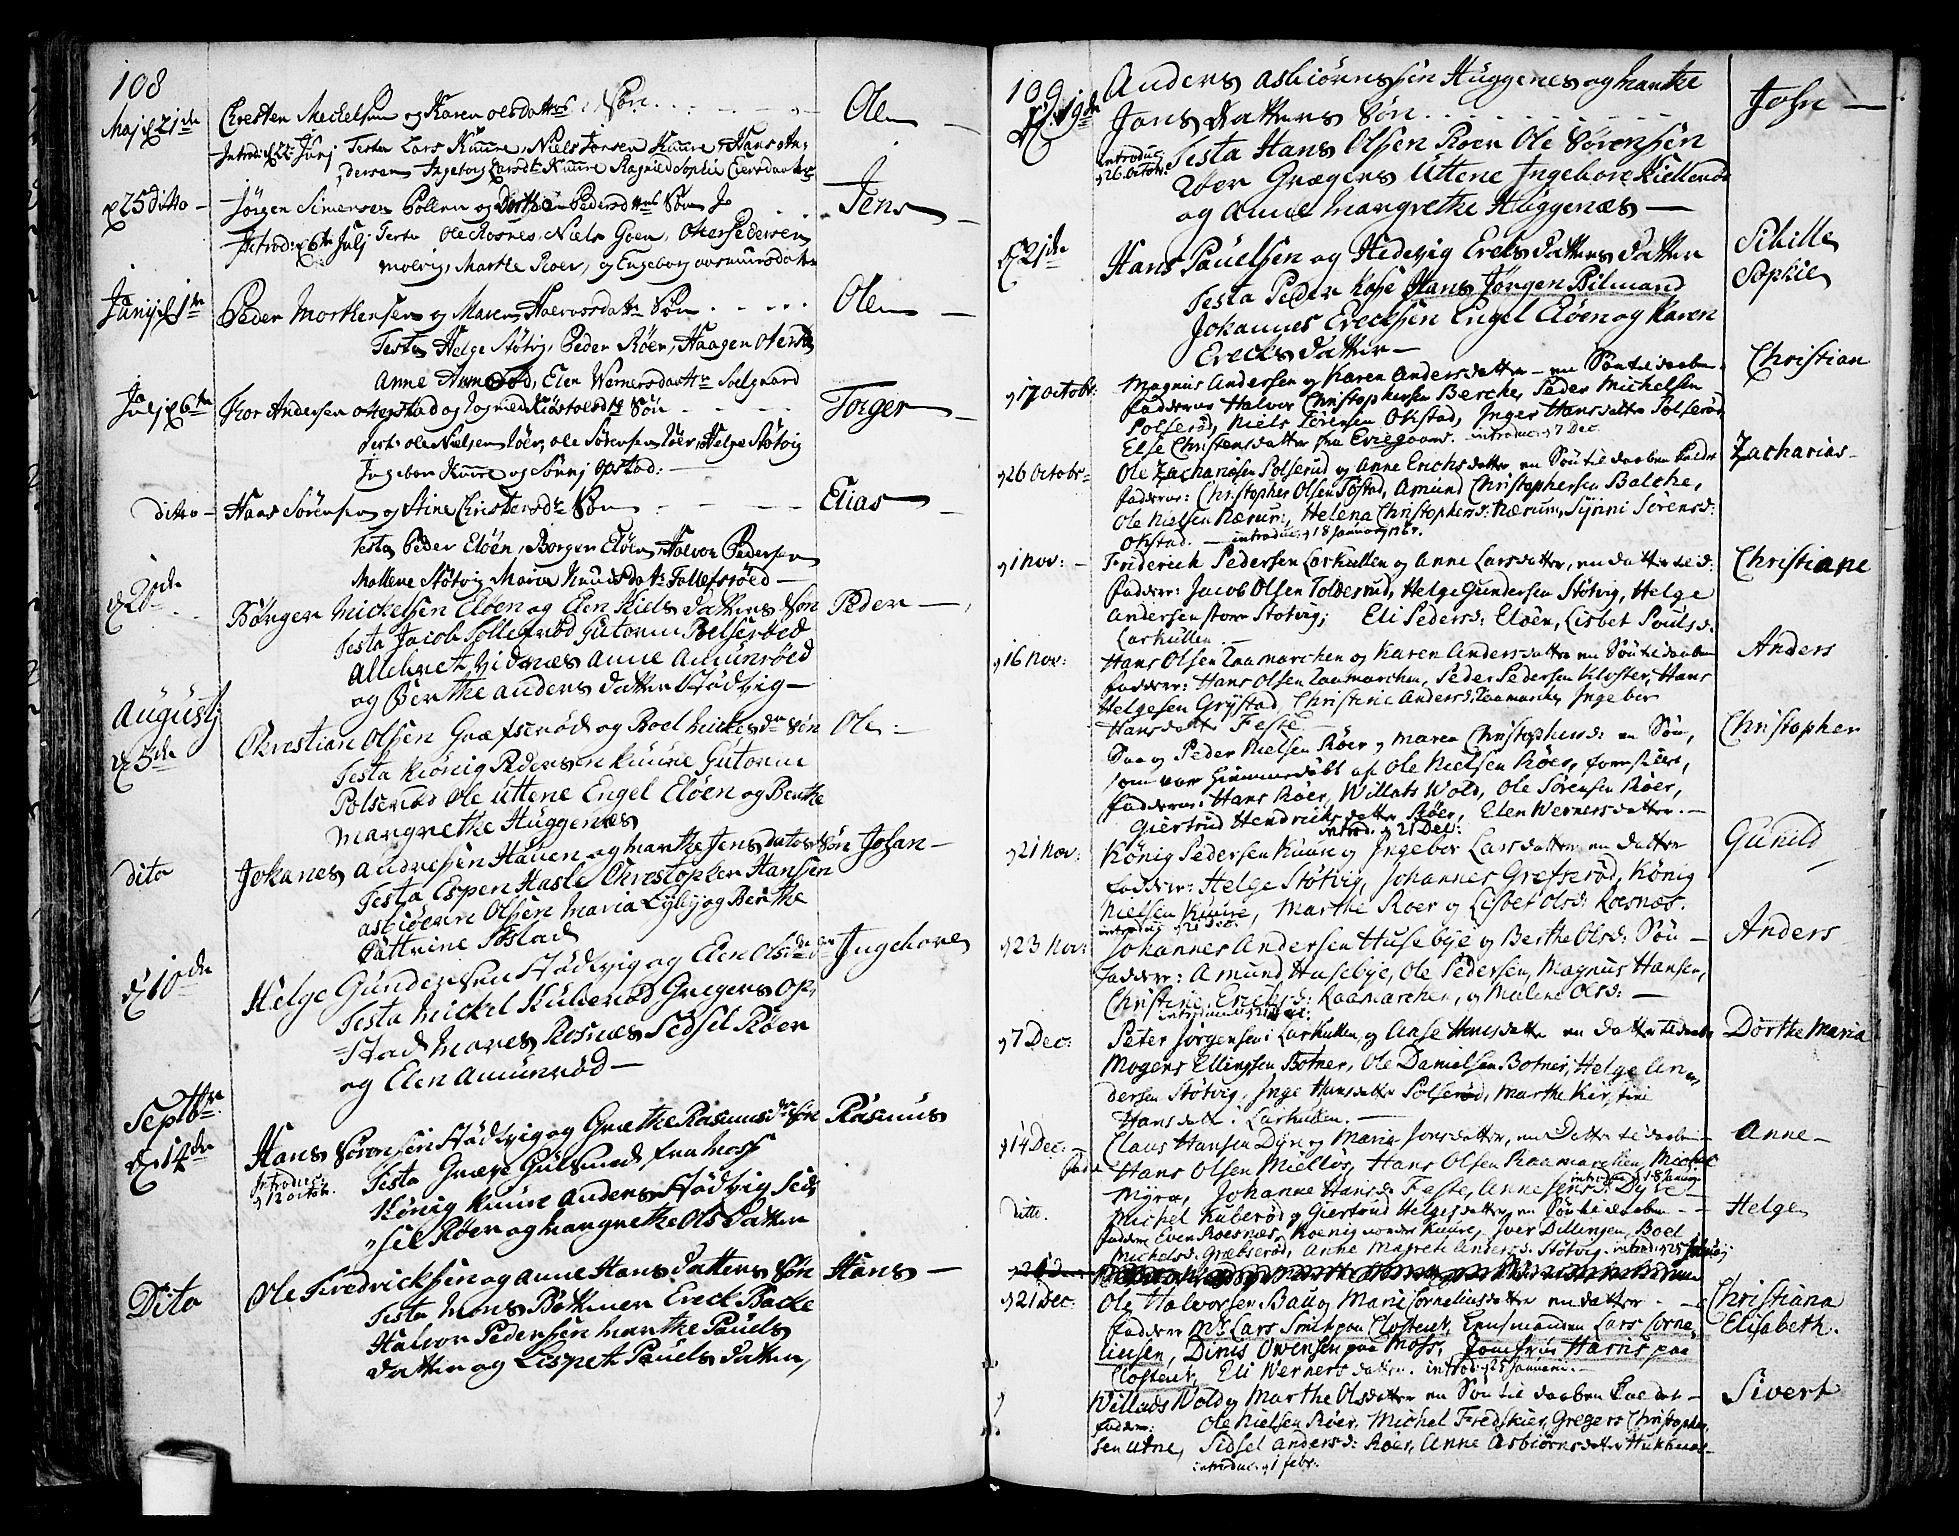 108
Maj d 21de Christen Mickelsen og Karen olsdatters Søn Ole
Introd: Junj Testa Lars Kuure, Niels Jonsen Kuure, Hans An,
dersen Ingeborg Larsdtr Kuure Ragnild Sophie
d 25 ditto Jørgen Simensen Pollen og Pedersdatters Søn Jens
Introd: d 6te Julj Testa Ole Rosnes, Niels Goen, Peder Pedersen
Marthe Roer, og Engeborg
Junj d 1ste Peder Morthensen og Maren Halvorsdatr Søn Ole
Testa Helge Støtvig, Peder Röer, Haagen
Anne Amunrød, Elen Wernersdattr Soelgaard
Julj d 6te Thor Andersen og Søn Torger
Test: ole Nielsen Röer, ole Sörensen Röer, Helge Støtvig
Ingebor Kuure og opstad:
ditto Hans Sørensen og Stine Christensdtr Søn Elias
Testa Peder Eløen, Borger Eløen, Halvor Pedersen
Mallene Støtvig Maria Knudsdatr Tollefsrøed
d 20de Børger Mickelsen Eløen og Elen Niels datters Søn Peder
Testa Jacob Tollefsrød Gutorm Polserøed
Vidnæs Anne Amunrøed
og Berthe anders datter Stødvig
Augustj
d 3de Christian Olsen Græfserød og Boel Mickelsdr Søn Ole
Testa König Pedersen Kuure Gutorm
Polserød Ole Uttene Engel Eløen og Berthe
Margrethe Huggenæs
dito Johanes Andresen Hauen og Marthe Jensdatter Søn Johan
Testa Espen Hasle Christopher Hansen
asbiörn Olsen Maria Eybij og Berthe
Cattrine Tostad
d 10de Helge Gundersen Stødvig og Elen Olsdr dr Ingebore
Testa Mickel Kuberød Gregers Op,
stad Mares Rosnæs Sidsel Röer
og Elen Amunrød
Septbr
d 14de Hans Sörensen Stødvig og Grethe Rasmusdr Søn Rasmus
Introduc: d 12 octobr. Testa Græse Gulsmed fra Moss
König Kuure Anders Stødvig Sid,
sel Röer og Margrethe Ols datter
Dito Ole Fredricksen og Anne Hans datters Søn Hans
Testa Mons Botner Erick Backe
Halvor Pedersen Marthe Pauels
datter og Lispet Pauels datter,
109
d 19de Anders asbiörnssen Huggenes og Marthe
Jans datters Søn John
introduc: d 26 octobr Testa Hans Olsen Roer Ole Sørensen
Roer Grægers Uttene Ingebore
og Anne Margrethe Huggenæs
d 21de Hans Pauelsen og Hedevig Erecks datters datter Sibille Sophie
Testa Peder Hans Jørgen Bilmand
Johannes Erecksen Engel Eløen og Karen
Erecks datter
d 17 octobr: Magnus Andersen og Karen Andersdatter en Søn til daaben Christian
fadderne Halvor Christophersen Berche, Peder Michelsen
Polserød, Niels Sörensen Okstad, Inger Hansdatter Polserød
Else Christensdatter fra Evjegaard. introduc: d 7 Dec.
d 26 octobr Ole Zachariasen Polserud og Anne Erichsdatter, en Søn til daaben kaldet Zacharias
fadderne: Christopher Olsen Tostad, Amund Christophersen Balche,
Ole Nielsen Rærum, Helena Christophersd: Rærum, Syrini Sörensd:
Okstad. introduc: d 18 januarj 1767.
d 1 nov: Friderich Pedersen Larkullen og Anne Larsdatter, en datter Christiane
fadder: Jacob Olsen Tolderud, Helge Gundersen Støtvig, Helge
Andersen store Støtvig; Eli Pedersd: Eløen, Lisbet Poulsd:
Larkullen.
d 16 nov: Hans Olsen Raamarchen og Karen Andersdatter en Søn til daaben Anders
fadder: Hans Olsen Raamarchen, Peder Pedersen Kloster, Hans
Helgesen Grystad, Christine Andersd. Raamarchen, Ingebor
Hansdatter Feste
Saa og Peder Nielsen Röer og Maren Christophersd: en Søn, Christopher
som var hiemmedøbt af Ole Nielsen Röer,
fadderne: Hans Röer, Willats Wold, Ole Sörensen Röer,
Giertrud Hendrichsdatter Röer, Elen Wernersdatter.
introd. d 21 Dec:
d 21 nov: König Pedersen Kuure og Ingebor Larsdatter en datter Gunild
fadder: Helge Støtvig, Johannes Grefserød, König
Nielsen Kuure, Marthe Roer og Lisbet Olsd: Roesnæs.
introduc: d 21 Dec.
d 23 nov: Johannes Andersen Husebye og Berthe Olsd: Søn Anders
fadder: Amund Husebye, Ole Pedersen, Magnus Hansen,
Christine Erichsd: Raamarchen, og Malene Olsd:
d 7 Dec: Peter Jörgensen Larkullen og Aase Hansdatter en datter til daab Dorthe Maria
Mogens Ellingsen Botner, Ole Danielsen Botner, Helge An,
dersen Støtvig, Inge Hansdatter Polserød, Marthe Kirstine
Hansdatt: Larkullen.
d 14 Dec: Claus Hansen Dyre og Marie Jonsdatter, en Datter til daaben Anne
fadd: Hans Olsen Mielløs, Hans Olsen Raamarchen, Michel
Myra, Johanne Hansd: Feste, Anne Jensd: Dyre introduc d 18 januarj
ditto. Michel Kuberød og Giertrud Helgesdatter, en Søn til daaben Helge
fadder Even Roesnæs, Koenig Kuure, Iver Dillingen, Boel
Michelsd: Græbserød, Anne Magrete Andersd: Støtvig. introd: d 25 januarj
d 21 Dec: Ole Halvorsen Bau og Marie Corneliusdatter en datter Christiana Elisabeth.
fadder Mr Lars Smit paa Closteret, Lars Corne,
liusen, Dines Owensen paa Moss, Jomfrue Harris paa
Closteret, Eli Werners datter. introd: d 25 januarii.
Willads Wold og Marthe Olsdatter en Søn til daaben kaldet Sivert
fadder: Ole Nielsen Röer, Michel Fredskier, Gregers Christopher,
sen Utne, Sidsel Andersd: Röer, Anne Asbiörnsdatter
introduc: d 1 febr.